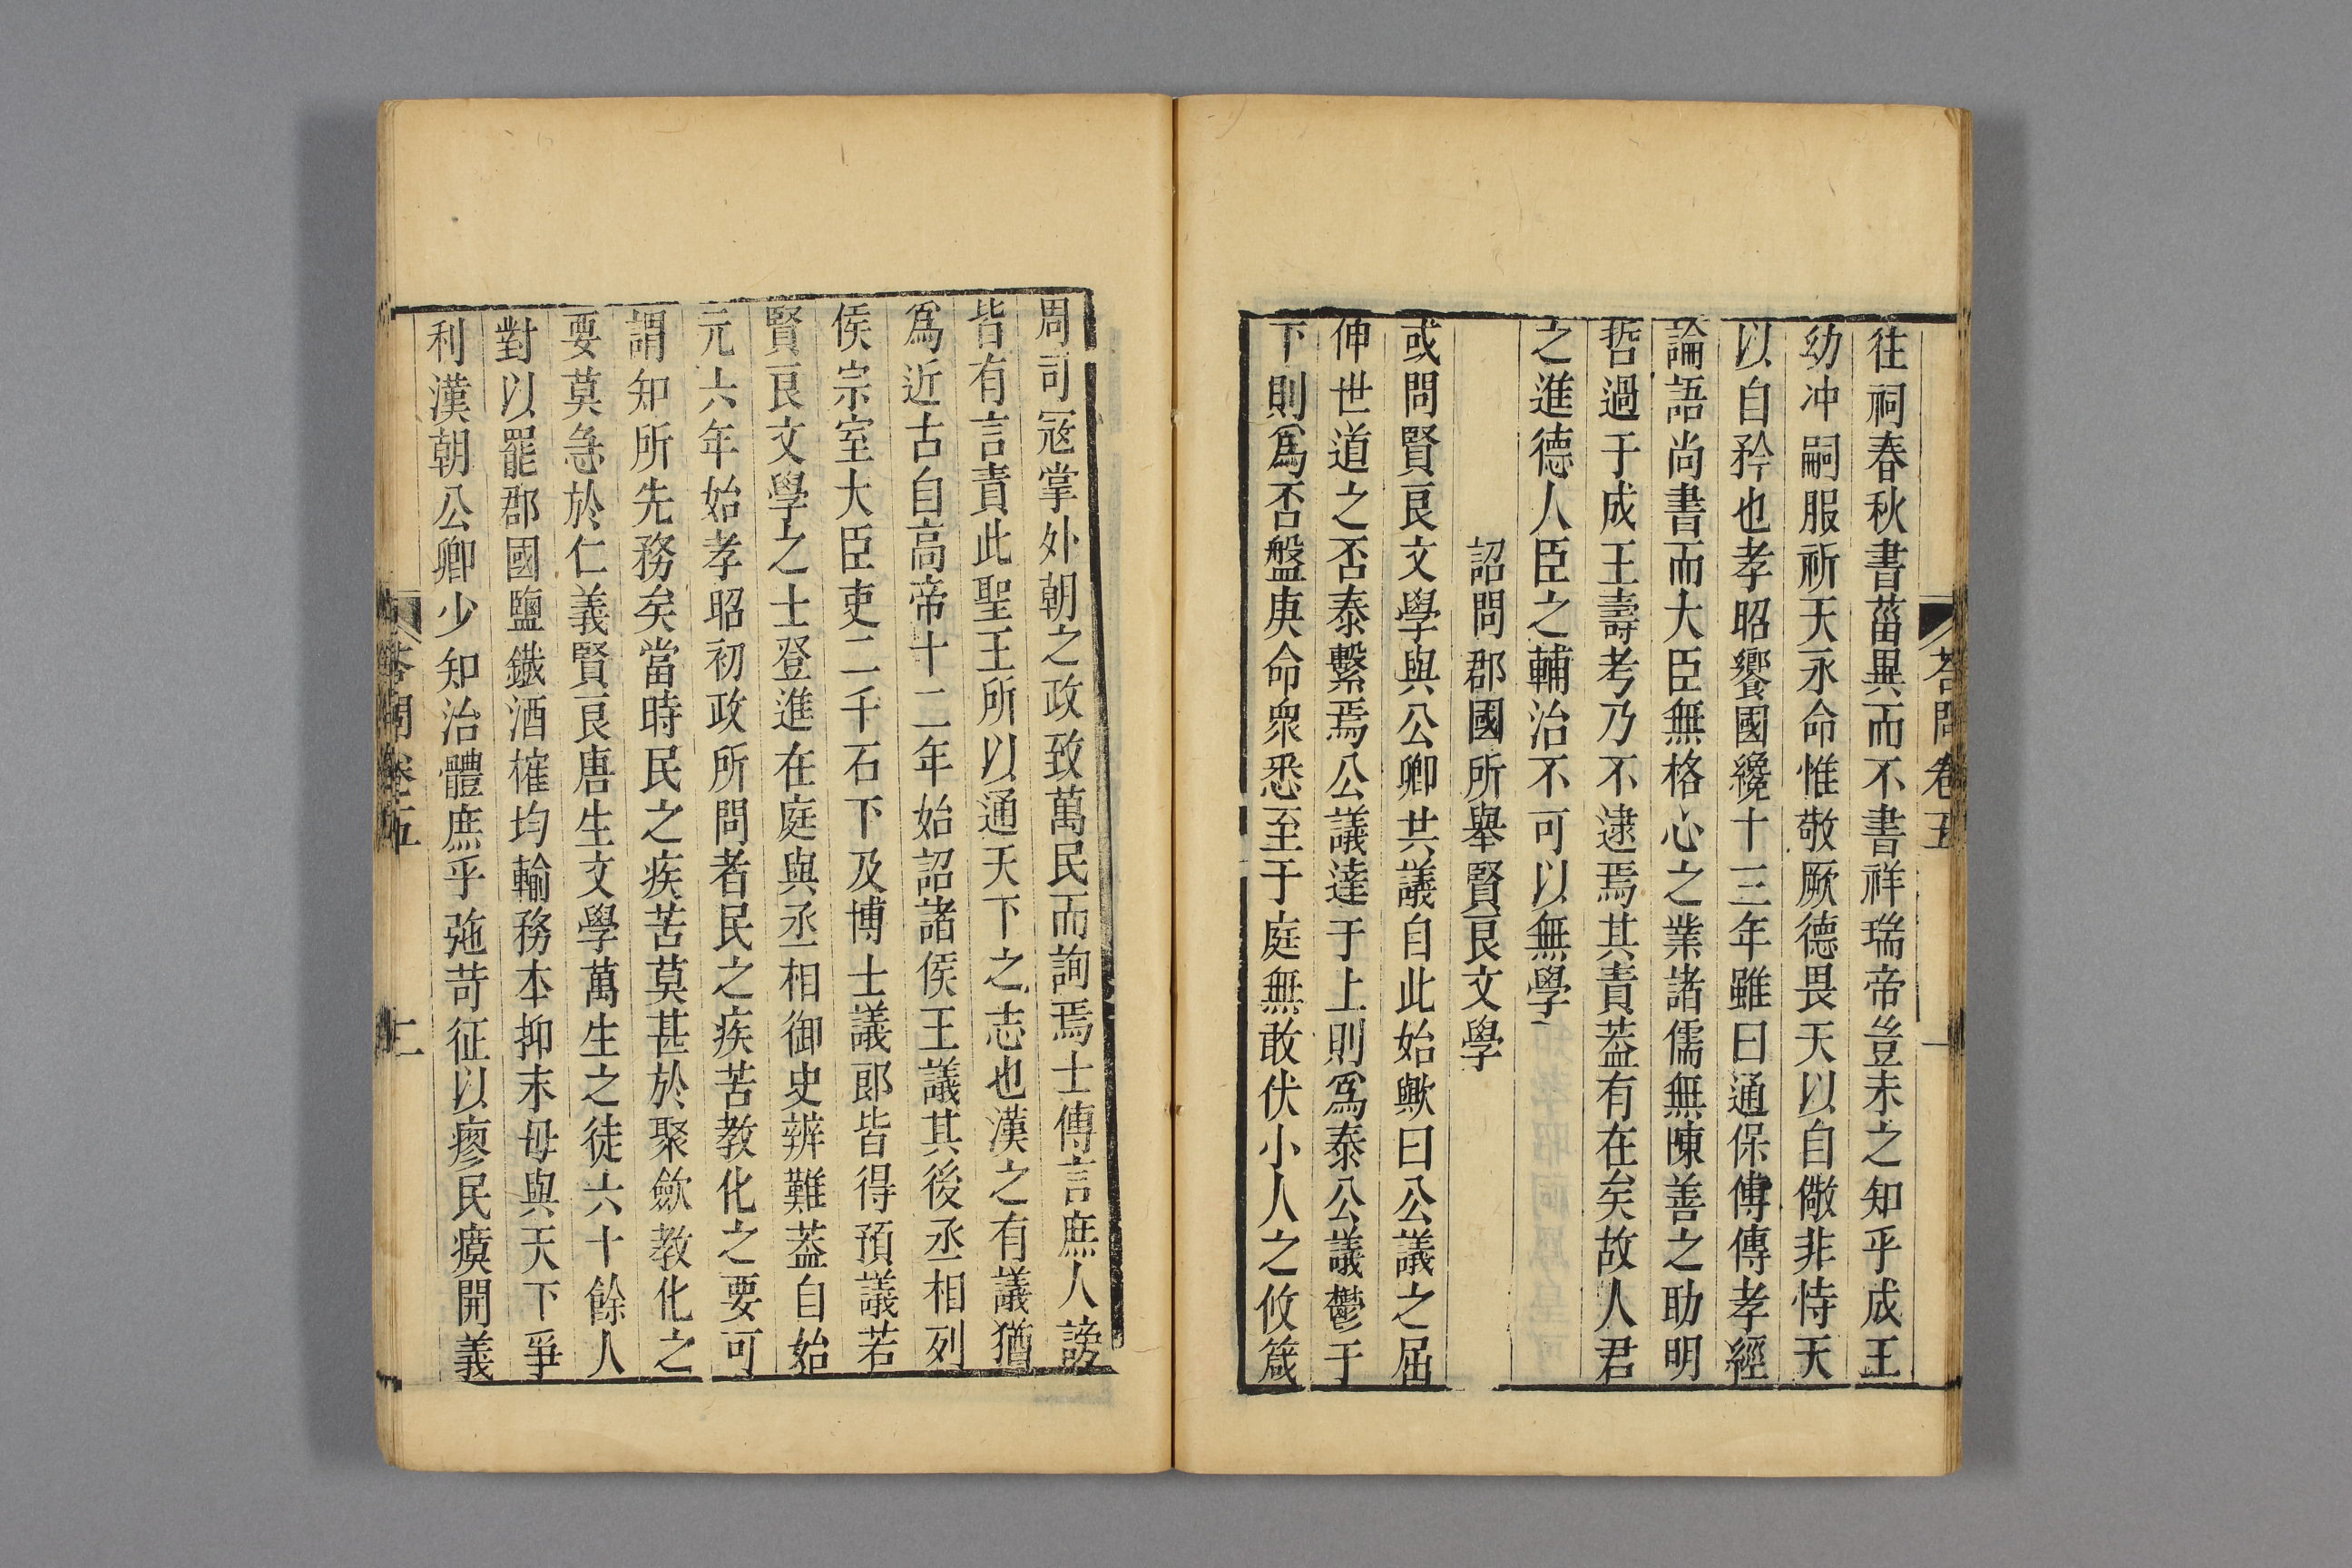 答問卷五
一
往祠春秋書菑異而不書祥瑞帝豈未之知乎成王
幼冲嗣服祈天永命惟敬厥德畏天以自儆非恃天
以自矜也孝昭饗國纔十三年雖曰通保傅傳孝經
論語尚書而大臣無格心之業諸儒無陳善之助明
哲過于成王壽考乃不逮焉其責葢有在矣故人君
之進德人臣之輔治不可以無學
詔問郡國所舉賢良文學
或問賢良文學與公卿共議自此始歟曰公議之屈
伸世道之否泰繫焉公議達于上則爲泰公議鬱于
下則爲否盤庚命衆悉至于庭無敢伏小人之攸箴
周司寇掌外朝之政致萬民而詢焉士傳言庶人謗
皆有言責此聖王所以通天下之志也漢之有議猶
爲近古自高帝十二年始詔諸侯王議其後丞相列
侯宗室大臣吏二千石下及博士議郎皆得預議若
賢良文學之士登進在庭與丞相御史辨難葢自始
元六年始孝昭初政所問者民之疾苦教化之要可
謂知所先務矣當時民之疾苦莫甚於聚歛教化之
要莫急於仁義賢良唐生文學萬生之徒六十餘人
對以罷郡國鹽鐵酒榷均輸務本抑末毋與天下爭
利漢朝公卿少知治體庶乎弛苛征以瘳民瘼開義
答問卷五
二